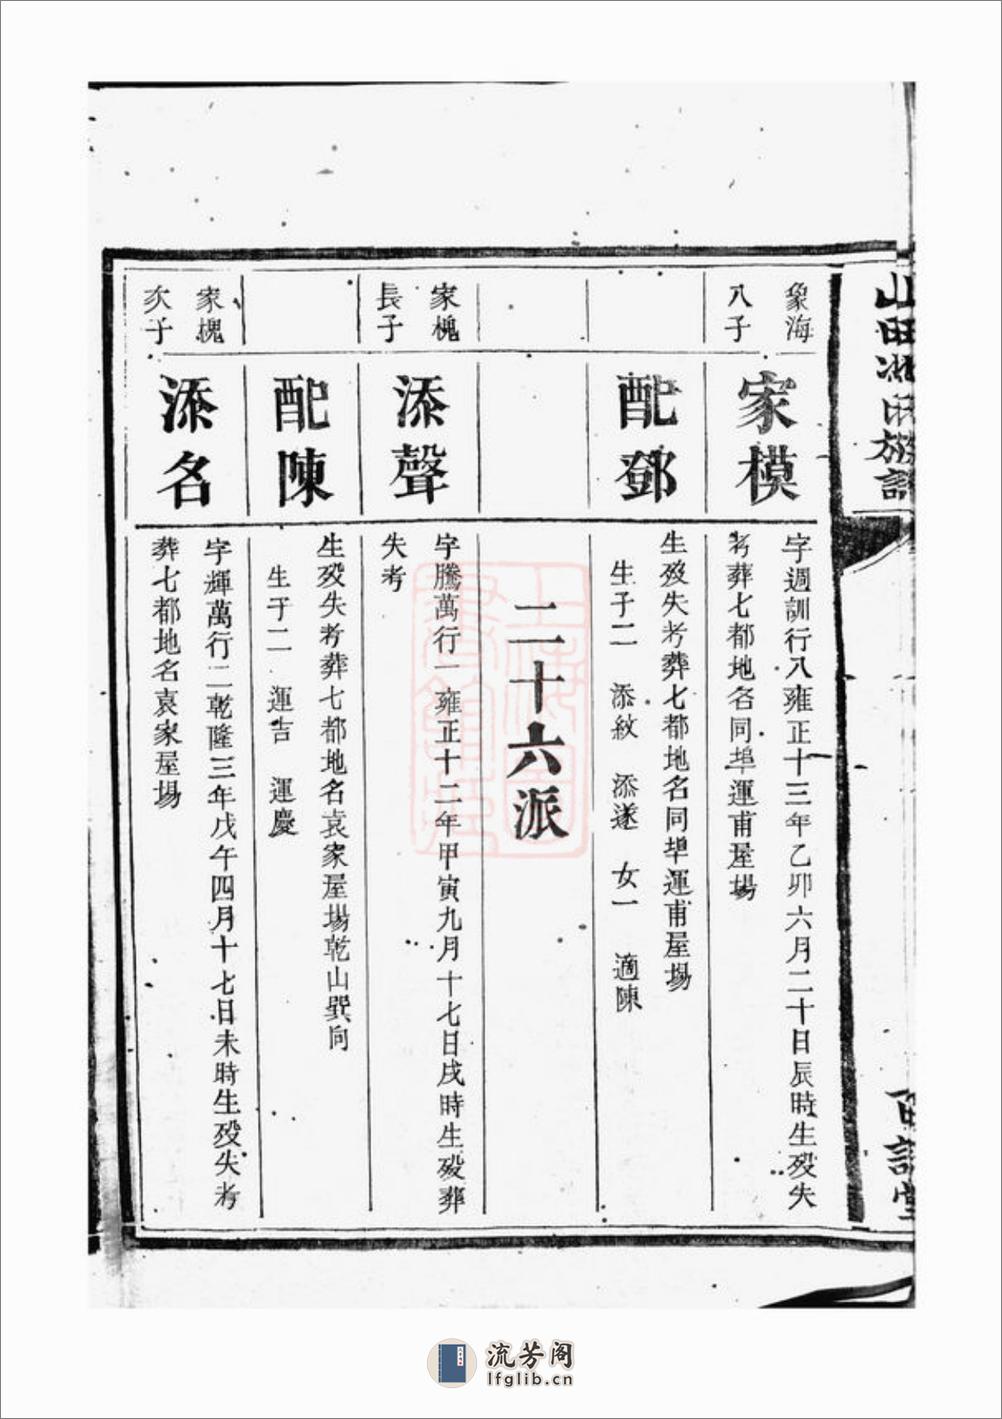 象海
八子
家模
字週訓行八雍正十三年乙卯六月二十日辰時生歿失
考葬七都地名同埠運甫屋場
配鄧
生歿失考葬七都地名同埠運甫屋場
生子二 添紋 添遂 女一 適陳
二十六派
家槐
長子
添聲
字騰萬行一雍正十二年甲寅九月十七日戌時生歿葬
失考
配陳
生歿失考葬七都地名袁家屋場乾山巽向
生子二 運吉 運慶
家槐
次子
添名
字輝萬行二乾隆三年戊午四月十七日未時生歿失考
葬七都地名袁家屋場
流芳阁
lfglib.cn